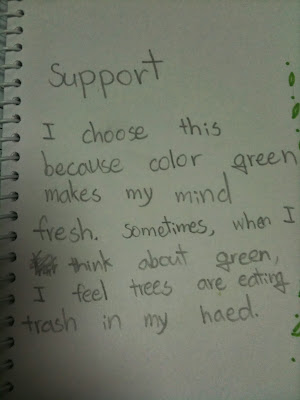 Support
I choose this
because color green
makes my mind
fresh. sometimes, when I
think about green,
I feel trees are eating
trash in my haed.